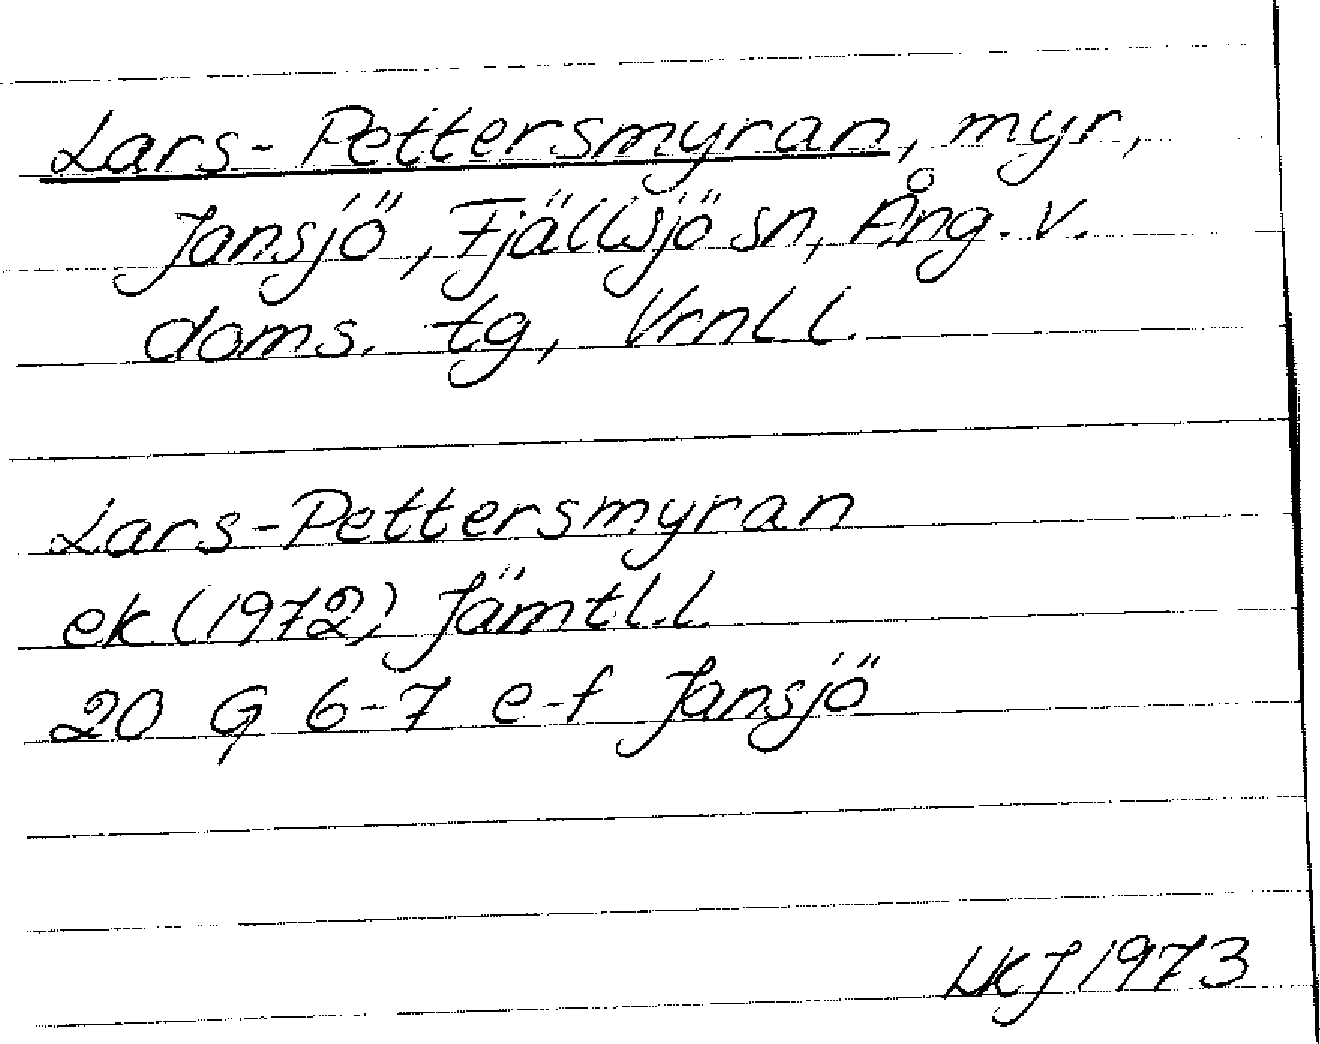 Lars-Pettersmyran, myr,
Jansjö, Fjällsjö sn, Ång. v.
doms. tg, Vrnl l.
Lars-Pettersmyran
ek (1972) Jämtl. l.
20 G 6-7 e-f Jansjö
LKJ 1973